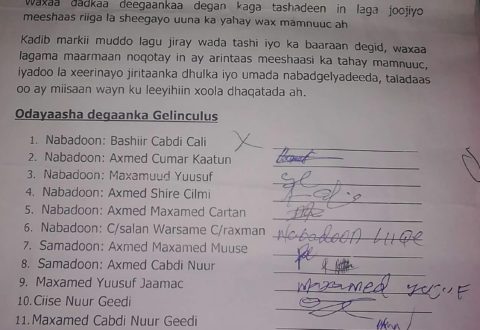 Waxaa dadkaa deegaankaa degan kaga tashadeen in laga joojiyo
meeshaas riiga la sheegayo uuna ka yahay wax mamnuuc ah
Kadib markii muddo lagu jiray wada tashi iyo ka baaraan degid, waxaa
lagama maarmaan noqotay in ay arintaas meeshaasi ka tahay mamnuuc,
iyadoo la xeerinayo jiritaanka dhulka iyo umada nabadgelyadeeda, taladaas
oo ay miisaan wayn ku leeyihiin xoola dhaqatada ah.
Odayaasha degaanka Gelinculus
1. Nabadoon: Bashiir Cabdi Cali
2. Nabadoon: Axmed Cumar Kaatun
3. Nabadoon: Maxamuud Yuusuf
4. Nabadoon: Axmed Shire Cilmi
5. Nabadoon: Axmed Maxamed Cartan
6. Nabadoon: C/salan Warsame C/raxman Nabadoon
7. Samadoon: Axmed Maxamed Muuse
8. Samadoon: Axmed Cabdi Nuur
9. Maxamed Yuusuf Jaamac Maxamed
10. Ciise Nuur Geedi
11. Maxamed Cabdi Nuur Geedi